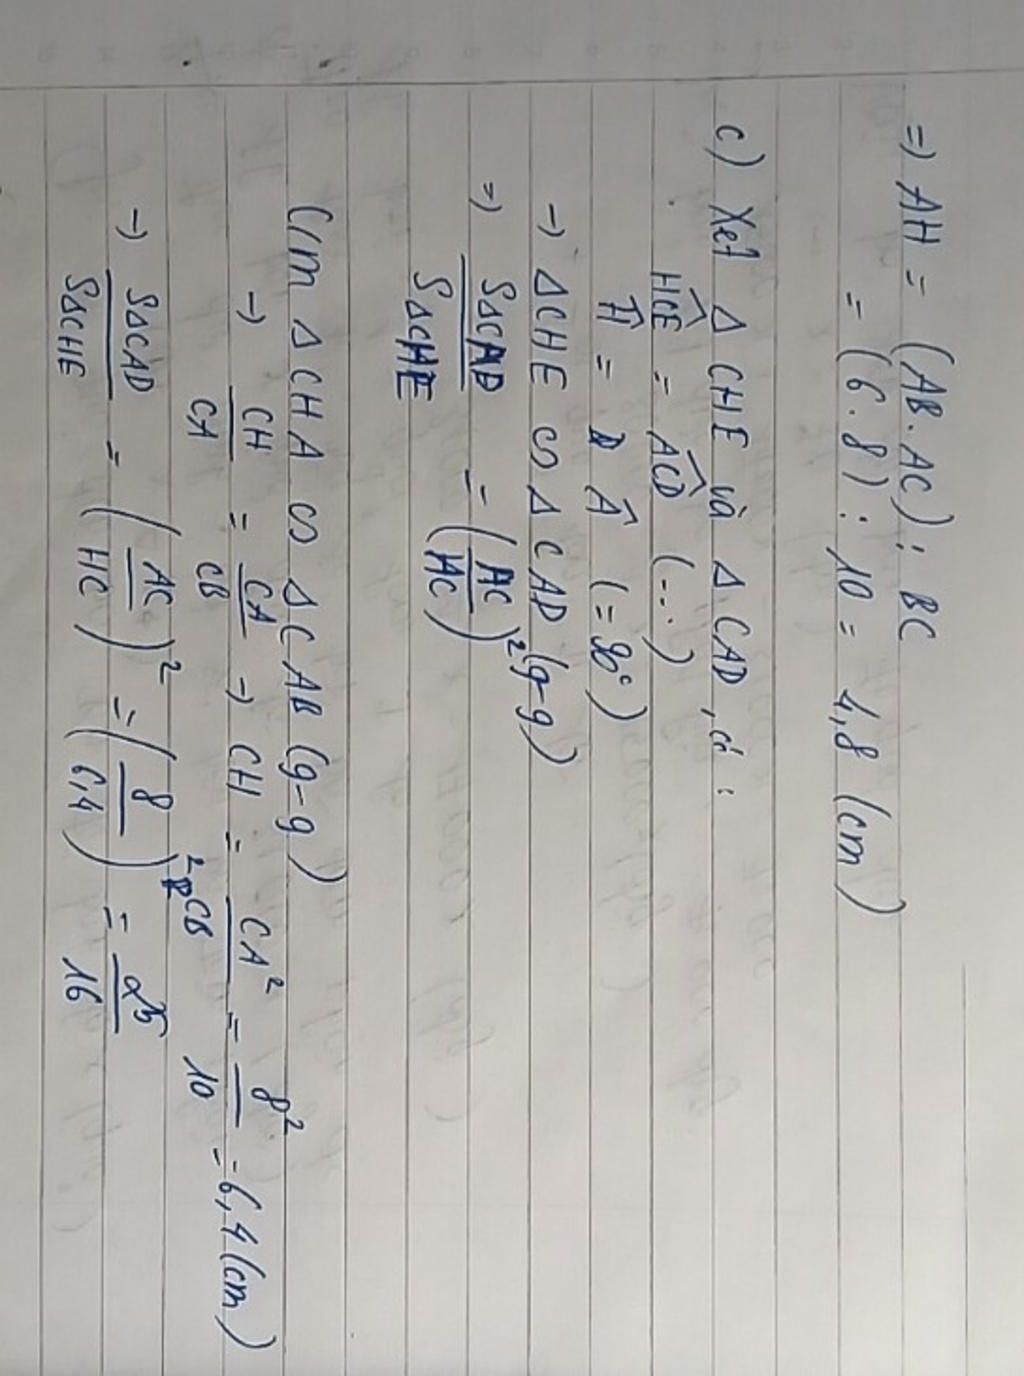 =) AH = (AB.AC) : BC
= (6.8) : 10 = 4,8 (cm)
c) Xét Δ CHE và Δ CAD, có :
HCE = ACD (...)
H = A (= 90°)
→ Δ CHE ∽ Δ CAD (g-g)
=) SΔCAD / SΔCHE = (AC / HC)²
C/m Δ CHA ∽ Δ CAB (g-g)
→ CH / CA = CA / CB → CH = CA² / CB = 8² / 10 = 6,4 (cm)
→ SΔCAD / SΔCHE = (AC / HC)² = (8 / 6,4)² = 25 / 16